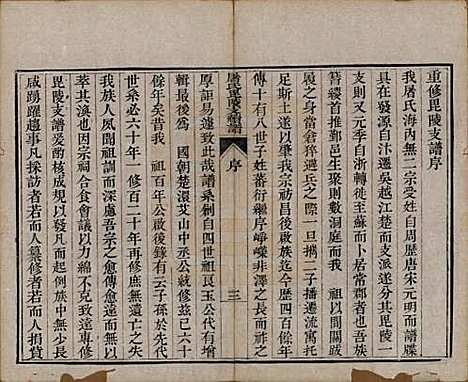 重修毘陵支譜序
我屠氏海內無二宗受姓自周歷唐宋元明而譜牒
具在發源汴迭吳越江楚而支派遂分其毘陵一
支則又於元季自浙轉徙至蘇而卜居常郡者也世
簪纓首推鄞邑生聚則數洞庭而我 祖以閥閱跋
履之身當倉猝避兵之際一旦攜二子播遷流寓托
足斯土遂以昌大我宗祊昌後啟來迄今歷四百餘年
傳十有八世子姓蕃衍繼序崢嶸非澤之長
屠氏毘陵支譜
序
三
厚詎易遠致此哉譜系剏自四世祖良玉公代有增
輯最後為 國朝楚濵艾山中丞公續修茲已六十
餘年矣昔我 祖百年公啟後錄有云子孫於先代
世系必六十年一修百二十年再修庶無遺亡之失
我族人夙聞祖訓而深慮吾宗之愈傳愈遠而無以
萃其渙也因於宗祠合食會議以力綿不克致遠專修
毘陵支譜爰酌核成規以垂後而起例族中人無不
咸踴躍趨事凡採訪者若而人纂修者若而人捐貲